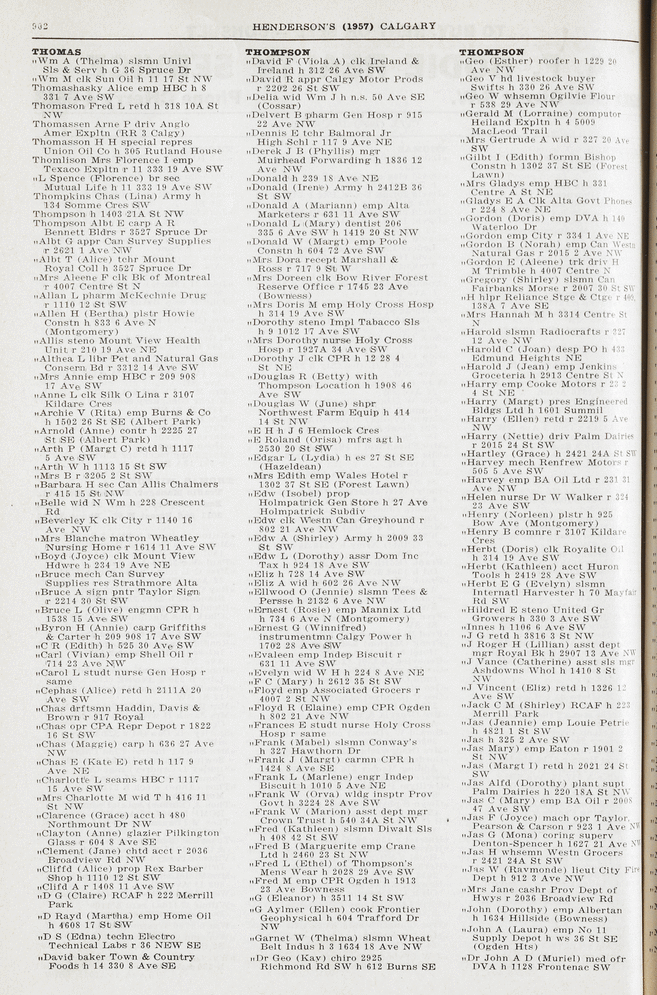 962
HENDERSON'S (1957) CALGARY
THOMAS
„Wm A (Thelma) slsmn Univl
Sls & Serv h G 36 Spruce Dr
„Wm M clk Sun Oil h 11 17 St NW
Thomashasky Alice emp HBC h 8
331 7 Ave SW
Thomason Fred L retd h 318 10A St
NW
Thomassen Arne P driv Anglo
Amer Expltn (RR 3 Calgy)
Thomasson H H special repres
Union Oil Co h 305 Rutland House
Thomlison Mrs Florence I emp
Texaco Expltn r 11 333 19 Ave SW
„L Spence (Florence) br sec
Mutual Life h 11 333 19 Ave SW
Thompkins Chas (Lina) Army h
134 Somme Cres SW
Thompson h 1403 21A St NW
Thompson Albt E carp A R
Bennett Bldrs r 3527 Spruce Dr
„Albt G appr Can Survey Supplies
r 2621 1 Ave NW
„Albt T (Alice) tchr Mount
Royal Coll h 3527 Spruce Dr
„Mrs Aleene F clk Bk of Montreal
r 4007 Centre St N
„Allan L pharm McKechnie Drug
r 1110 12 St SW
„Allen H (Bertha) plstr Howie
Constn h 833 6 Ave N
(Montgomery)
„Allis steno Mount View Health
Unit r 210 19 Ave NE
„Althea L libr Pet and Natural Gas
Conservn Bd r 3312 14 Ave SW
„Mrs Annie emp HBC r 209 908
17 Ave SW
„Anne L clk Silk O Lina r 3107
Kildare Cres
„Archie V (Rita) emp Burns & Co
h 1502 26 St SE (Albert Park)
„Arnold (Anne) contr h 2225 27
St SE (Albert Park)
„Arth P (Margt C) retd h 1117
5 Ave SW
„Arth W h 1113 15 St SW
„Mrs B r 3205 2 St SW
„Barbara H sec Can Allis Chalmers
r 415 15 St NW
„Belle wid N Wm h 228 Crescent
Rd
„Beverley K clk City r 1140 16
Ave NW
„Mrs Blanche matron Wheatley
Nursing Home r 1614 11 Ave SW
„Boyd (Joyce) clk Mount View
Hdwre h 234 19 Ave NE
„Bruce mech Can Survey
Supplies res Strathmore Alta
„Bruce A sign pntr Taylor Sign
r 2214 30 St SW
„Bruce L (Olive) engmn CPR h
1538 15 Ave SW
„Byron H (Annie) carp Griffiths
& Carter h 209 908 17 Ave SW
„C R (Edith) h 525 30 Ave SW
„Carl (Vivian) emp Shell Oil r
714 23 Ave NW
„Carol L studt nurse Gen Hosp r
same
„Cephas (Alice) retd h 2111A 20
Ave SW
„Chas drftsmn Haddin, Davis &
Brown r 917 Royal
„Chas opr CPA Repr Depot r 1822
16 St SW
„Chas (Maggie) carp h 636 27 Ave
NW
„Chas E (Kate E) retd h 117 9
Ave NE
„Charlotte L seams HBC r 1117
15 Ave SW
„Mrs Charlotte M wid T h 416 11
St NW
„Clarence (Grace) acct h 480
Northmount Dr NW
„Clayton (Anne) glazier Pilkington
Glass r 604 8 Ave SE
„Clement (Jane) chtd acct r 2036
Broadview Rd NW
„Cliffd (Alice) prop Rex Barber
Shop h 1110 12 St SW
„Clifd A r 1408 11 Ave SW
„D G (Claire) RCAF h 222 Merrill
Park
„D Rayd (Martha) emp Home Oil
h 4608 17 St SW
„D S (Edna) techn Electro
Technical Labs r 36 NEW SE
„David baker Town & Country
Foods h 14 330 8 Ave SE
THOMPSON
„David F (Viola A) clk Ireland &
Ireland h 312 26 Ave SW
„David R appr Calgry Motor Prods
r 2202 26 St SW
„Delia wid Wm J h n.s. 50 Ave SE
(Cossar)
„Delvert B pharm Gen Hosp r 915
22 Ave NW
„Dennis E tchr Balmoral Jr
High Schl r 117 9 Ave NE
„Derek J B (Phyllis) mgr
Muirhead Forwarding h 1836 12
Ave NW
„Donald h 239 18 Ave NE
„Donald (Irene) Army h 2412B 36
St SW
„Donald A (Mariann) emp Alta
Marketers r 631 11 Ave SW
„Donald L (Mary) dentist 206
335 6 Ave SW h 1419 20 St NW
„Donald W (Margt) emp Poole
Constn h 604 72 Ave SW
„Mrs Dora recept Marshall &
Ross r 717 9 St W
„Mrs Doreen clk Bow River Forest
Reserve Office r 1745 23 Ave
(Bowness)
„Mrs Doris M emp Holy Cross Hosp
h 314 19 Ave SW
„Dorothy steno Impl Tabacco Sls
h 9 1012 17 Ave SW
„Mrs Dorothy nurse Holy Cross
Hosp r 1927A 34 Ave SW
„Dorothy J clk CPR h 12 28 4
St NE
„Douglas R (Betty) with
Thompson Location h 1908 46
Ave SW
„Douglas W (June) shpr
Northwest Farm Equip h 414
14 St NW
„E H h J 6 Hemlock Cres
„E Roland (Orisa) mfrs agt h
2530 20 St SW
„Edgar L (Lydia) h es 27 St SE
(Hazeldean)
„Mrs Edith emp Wales Hotel r
1302 37 St SE (Forest Lawn)
„Edw (Isobel) prop
Holmpatrick Gen Store h 27 Ave
Holmpatrick Subdiv
„Edw clk Westn Can Greyhound r
802 21 Ave NW
„Edw A (Shirley) Army h 2009 33
St SW
„Edw L (Dorothy) assr Dom Inc
Tax h 924 18 Ave SW
„Eliz h 728 14 Ave SW
„Eliz A wid h 602 26 Ave NW
„Ellwood O (Jennie) slsmn Tees &
Persse h 2132 6 Ave NW
„Ernest (Rosie) emp Mannix Ltd
h 734 6 Ave N (Montgomery)
„Ernest G (Winnifred)
instrumentmn Calgy Power h
1702 28 Ave SW
„Evaleen emp Indep Biscuit r
631 11 Ave SW
„Evelyn wid W H h 224 8 Ave NE
„F C (Mary) h 2612 35 St SW
„Floyd emp Associated Grocers r
4007 2 St NW
„Floyd R (Elaine) emp CPR Ogden
h 802 21 Ave NW
„Frances E studt nurse Holy Cross
Hosp r same
„Frank (Mabel) slsmn Conway's
h 327 Hawthorn Dr
„Frank J (Margt) carmn CPR h
1424 8 Ave SE
„Frank L (Marlene) engr Indep
Biscuit h 1010 5 Ave NE
„Frank W (Orva) wldg insptr Prov
Govt h 3224 28 Ave SW
„Frank W (Marion) asst dept mgr
Crown Trust h 540 34A St NW
„Fred (Kathleen) slsmn Diwalt Sls
h 408 42 St SW
„Fred B (Marguerite emp Crane
Ltd h 2460 23 St NW
„Fred L (Ethel) of Thompson's
Mens Wear h 2028 29 Ave SW
„Fred M emp CPR Ogden h 1913
23 Ave Bowness
„G (Eleanor) h 3511 14 St SW
„G Aylmer (Ellen) cook Frontier
Geophysical h 604 Trafford Dr
NW
„Garnet W (Thelma) slsmn Wheat
Belt Indus h 3 1634 18 Ave NW
„Dr Geo (Kay) chiro 2925
Richmond Rd SW h 612 Burns SE
THOMPSON
„Geo (Esther) roofer h 1229 20
Ave NW
„Geo V hd livestock buyer
Swifts h 330 26 Ave SW
„Geo W whsemn Ogilvie Flour
r 538 29 Ave NW
„Gerald M (Lorraine) computor
Heiland Expltn h 4 5009
MacLeod Trail
„Mrs Gertrude A wid r 327 20 Ave
SW
„Gilbt I (Edith) formn Bishop
Constn h 1302 37 St SE (Forest
Lawn)
„Mrs Gladys emp HBC h 331
Centre A St NE
„Gladys E A Clk Alta Govt Phones
r 224 8 Ave NE
„Gordon (Doris) emp DVA h 140
Waterloo Dr
„Gordon emp City r 334 1 Ave NE
„Gordon B (Norah) emp Can Westn
Natural Gas r 2015 2 Ave NW
„Gordon E (Aleene) trk driv H
M Trimble h 4007 Centre N
„Gregory (Shirley) slsmn Can
Fairbanks Morse r 2007 30 St SW
„H hlpr Reliance Stge & Ctge r
138A 7 Ave SE
„Mrs Hannah M h 3314 Centre St
N
„Harold slsmn Radiocrafts r 327
12 Ave NW
„Harold C (Joan) desp PO h 433
Edmund Heights NE
„Harold J (Jean) emp Jenkins
Groceteria h 2913 Centre St N
„Harry emp Cooke Motors r
4 St NE
„Harry (Margt) pres Engineered
Bldgs Ltd h 1601 Summil
„Harry (Ellen) retd r 2219 5 Ave
NW
„Harry (Nettie) driv Palm Dairies
r 2015 24 St SW
„Hartley (Grace) h 2421 24A St SW
„Harvey mech Renfrew Motors r
505 5 Ave SW
„Harvey emp BA Oil Ltd r 231 31
Ave NW
„Helen nurse Dr W Walker r 324
23 Ave SW
„Henry (Norleen) plstr h 925
Bow Ave (Montgomery)
„Henry B comnre r 3107 Kildare
Cres
„Herbt (Doris) clk Royalite Oil
h 314 19 Ave SW
„Herbt (Kathleen) acct Huron
Tools h 2419 28 Ave SW
„Herbt E G (Evelyn) slsmn
Internal Harvester h 70 Mayfair
Rd SW
„Hildred E steno United Gr
Growers h 330 3 Ave SW
„Innes h 1106 6 Ave SW
„J G retd h 3816 3 St NW
„J Roger H (Lillian) asst dept
mgr Royal Bk h 2907 13 Ave NW
„J Vance (Catherine) asst sls mgr
Ashdowns Whol h 1410 8 St
NW
„J Vincent (Eliz) retd h 1326 12
Ave SW
„Jack C M (Shirley) RCAF h 223
Merrill Park
„Jas (Jeannie) emp Louie Petrie
h 4821 1 St SW
„Jas h 325 2 Ave SW
„Jas Mary) emp Eaton r 1901 2
St NW
„Jas (Margt I) retd h 2021 24 St
SW
„Jas Alfd (Dorothy) plant supt
Palm Dairies h 220 18A St NW
„Jas C (Mary) emp BA Oil r 2008
47 Ave SW
„Jas F (Joyce) mach opr Taylor,
Pearson & Carson r 923 1 Ave NW
„Jas G (Mona) coring superv
Denton-Spencer h 1627 21 Ave NW
„Jas H whsemn Westn Grocers
r 2421 24A St SW
„Jas W (Raymonde) lieut City Fire
Dept h 912 3 Ave NW
„Mrs Jane cashr Prov Dept of
Hwys r 2036 Broadview Rd
„John (Dorothy) emp Albertan
h 1634 Hillside (Bowness)
„John A (Laura) emp No 11
Supply Depot h ws 36 St SE
(Ogden Hts)
„Dr John A D (Muriel) med ofr
DVA h 1128 Frontenac SW